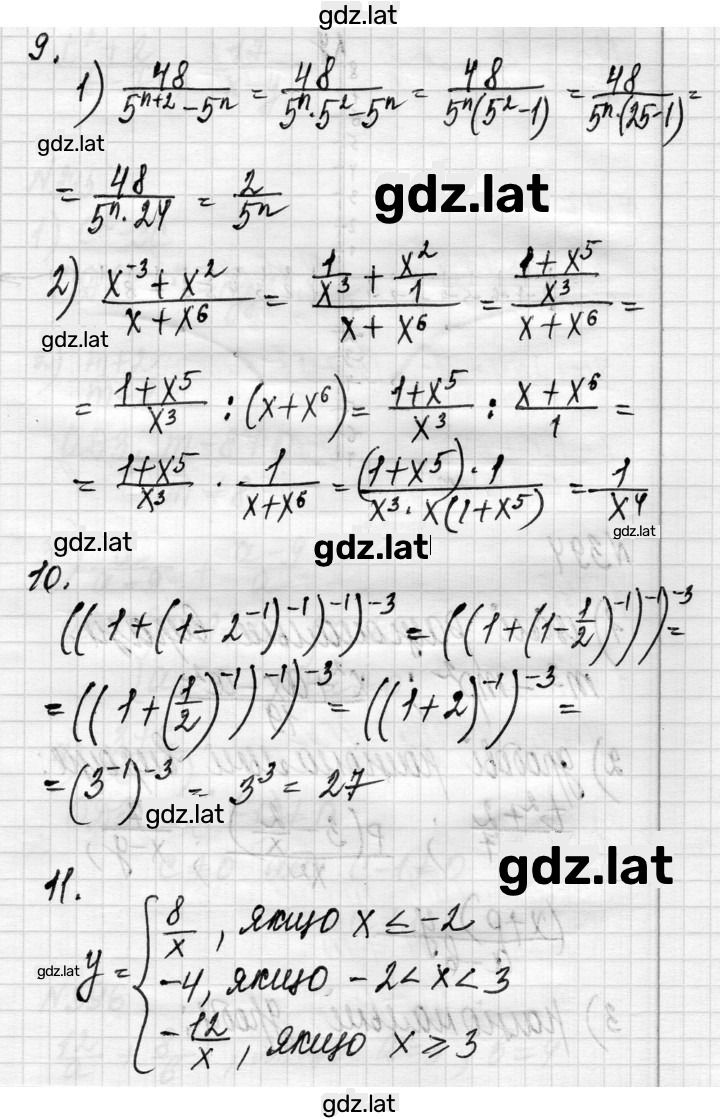 gdz.lat
9.
1) 48/(5^(n+2) - 5^n) = 48/(5^n · 5^2 - 5^n) = 48/(5^n(5^2 - 1)) = 48/(5^n · (25-1)) =
gdz.lat
= 48/(5^n · 24) = 2/5^n
gdz.lat
2) (x^-3 + x^2)/(x + x^6) = (1/x^3 + x^2/1)/(x + x^6) = ((1 + x^5)/x^3)/(x + x^6) =
gdz.lat
= (1+x^5)/x^3 : (x+x^6) = (1+x^5)/x^3 : (x + x^6)/1 =
= (1+x^5)/x^3 · 1/(x+x^6) = ((1+x^5) · 1)/(x^3 · x(1+x^5)) = 1/x^4
gdz.lat gdz.lat gdz.lat
10.
((1+(1-2^-1)^-1)^-1)^-3 = ((1+(1-1/2)^-1)^-1)^-3 =
= ((1+(1/2)^-1)^-1)^-3 = ((1+2)^-1)^-3 =
= (3^-1)^-3 = 3^3 = 27
gdz.lat
gdz.lat
11.
8/x, якщо x ≤ -2
gdz.lat y = { -4, якщо -2 < x < 3
-12/x, якщо x ⩾ 3
gdz.lat